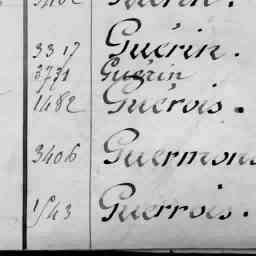 3317 Guérin.
3731 Guérin
1482 Guérois.
3406 Guermons
1543 Guerrois.